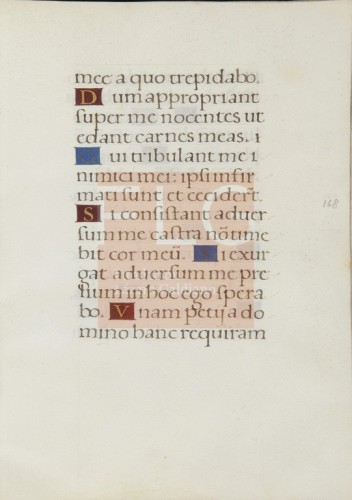 mee a quo trepidabo.
Dum appropriant
super me nocentes ut
edant carnes meas.
ui tribulant me i
nimici mei: ipsi infir
mati sunt et ceciderūt.
Si consistant adver
sum me castra nō time
bit cor meū. Si exur
gat adversum me pre
lium in hoc ego spera
bo. Unam petii a do
mino hanc requiram
168
FLG